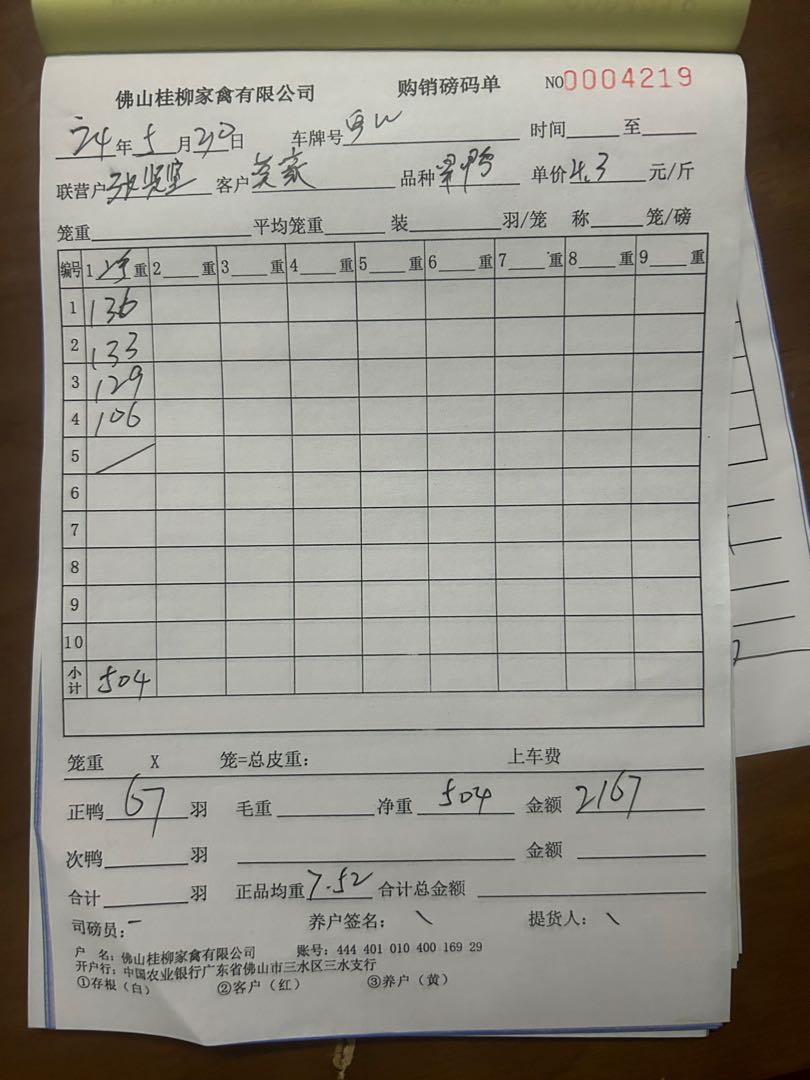 佛山桂柳家禽有限公司 购销磅码单 NO0004219
24年5月30日 车牌号 时间 至
联营户 客户 吴家 品种 单价4.3元/斤
笼重 平均笼重 装 羽/笼 称 笼/磅
编号 1净重 2 重 3 重 4 重 5 重 6 重 7 重 8 重 9 重
1 136
2 133
3 129
4 106
5
6
7
8
9
10
小计 504
笼重 X 笼=总皮重: 上车费
正鸭67羽 毛重 净重504 金额2167
次鸭 羽 金额
合计 羽 正品均重7.52 合计总金额
司磅员: 养户签名: 提货人:
户 名: 佛山桂柳家禽有限公司 账号: 444 401 010 400 169 29
开户行: 中国农业银行广东省佛山市三水区三水支行
①存根(白) ②客户(红) ③养户(黄)